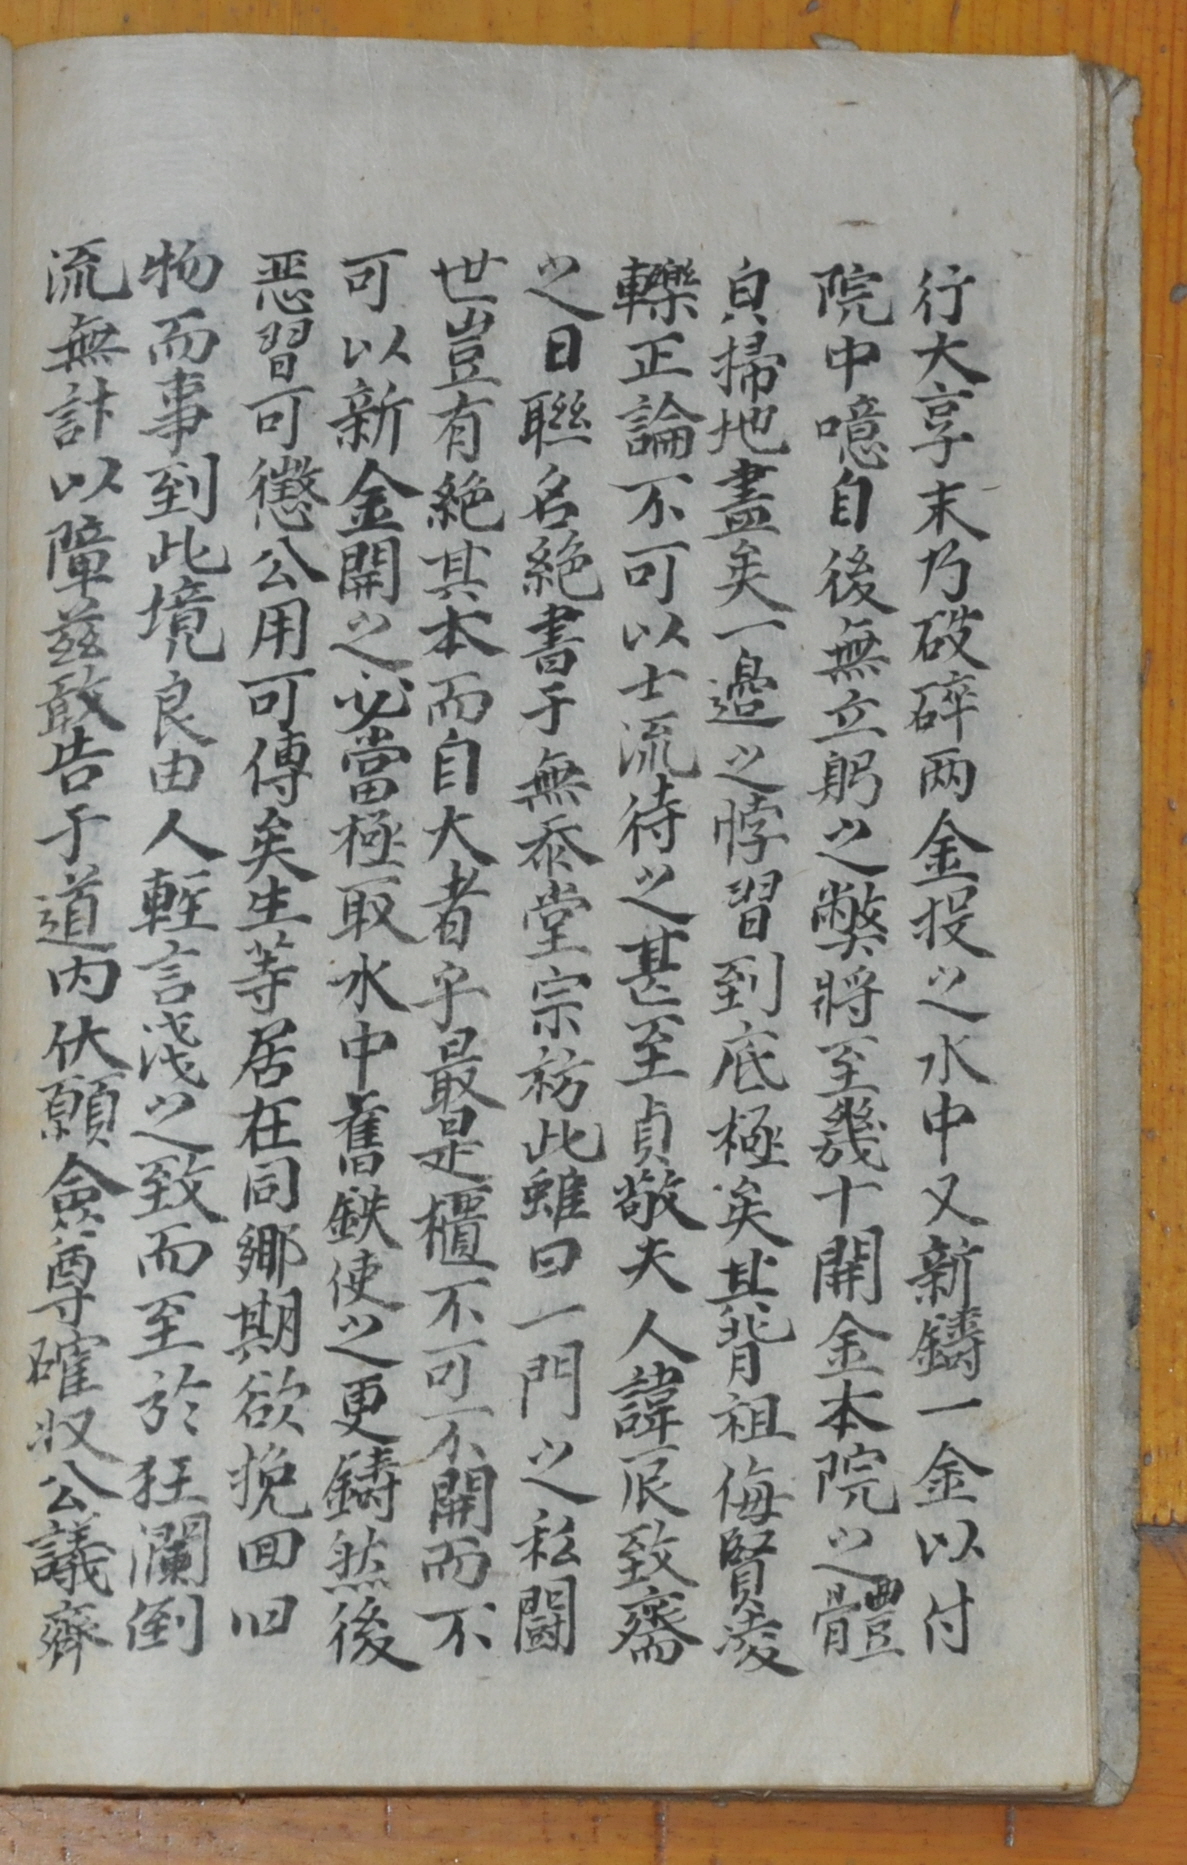 行大享末乃破碎两金投之水中又新鑄一金以付
院中噫自後無立躬之弊將至幾十開金本院之體
皃掃地盡矣一邉之悖習到底極矣其背祖侮賢凌
轢正論不可以士流待之甚至貞敬夫人諱辰致齋
之日聯名絶書于無忝堂宗祊此雖曰一門之私鬪
世豈有絶其本而自大者乎最是櫃不可不開而不
可以新金開之必當極取水中舊鉄使之更鑄然後
恶習可懲公用可傳矣生等居在同鄉期欲挽回旧
物而事到此境良由人輊言淺之致而至於狂瀾倒
流無計以障茲敢告于道内伏願僉尊確収公議齊